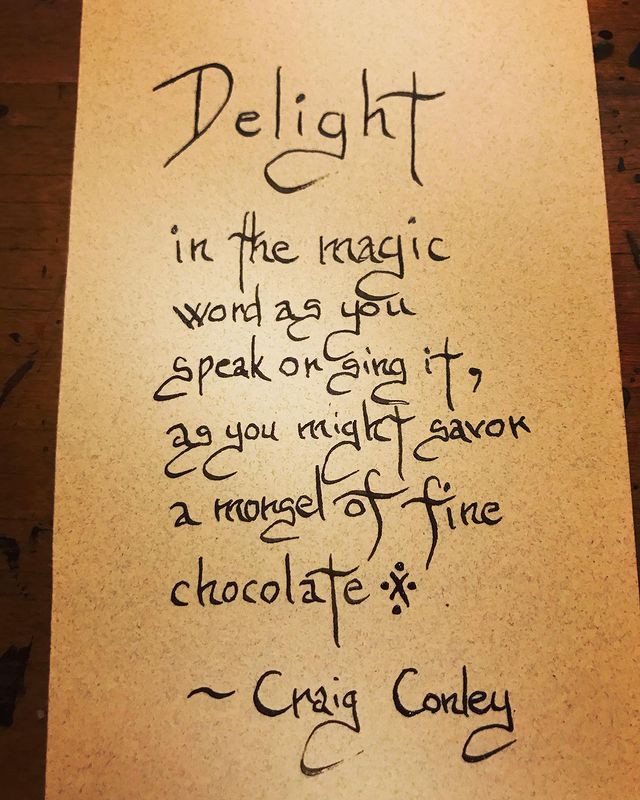 Delight
in the magic
word as you
speak or sing it,
as you might savor
a morsel of fine
chocolate ※
~ Craig Conley